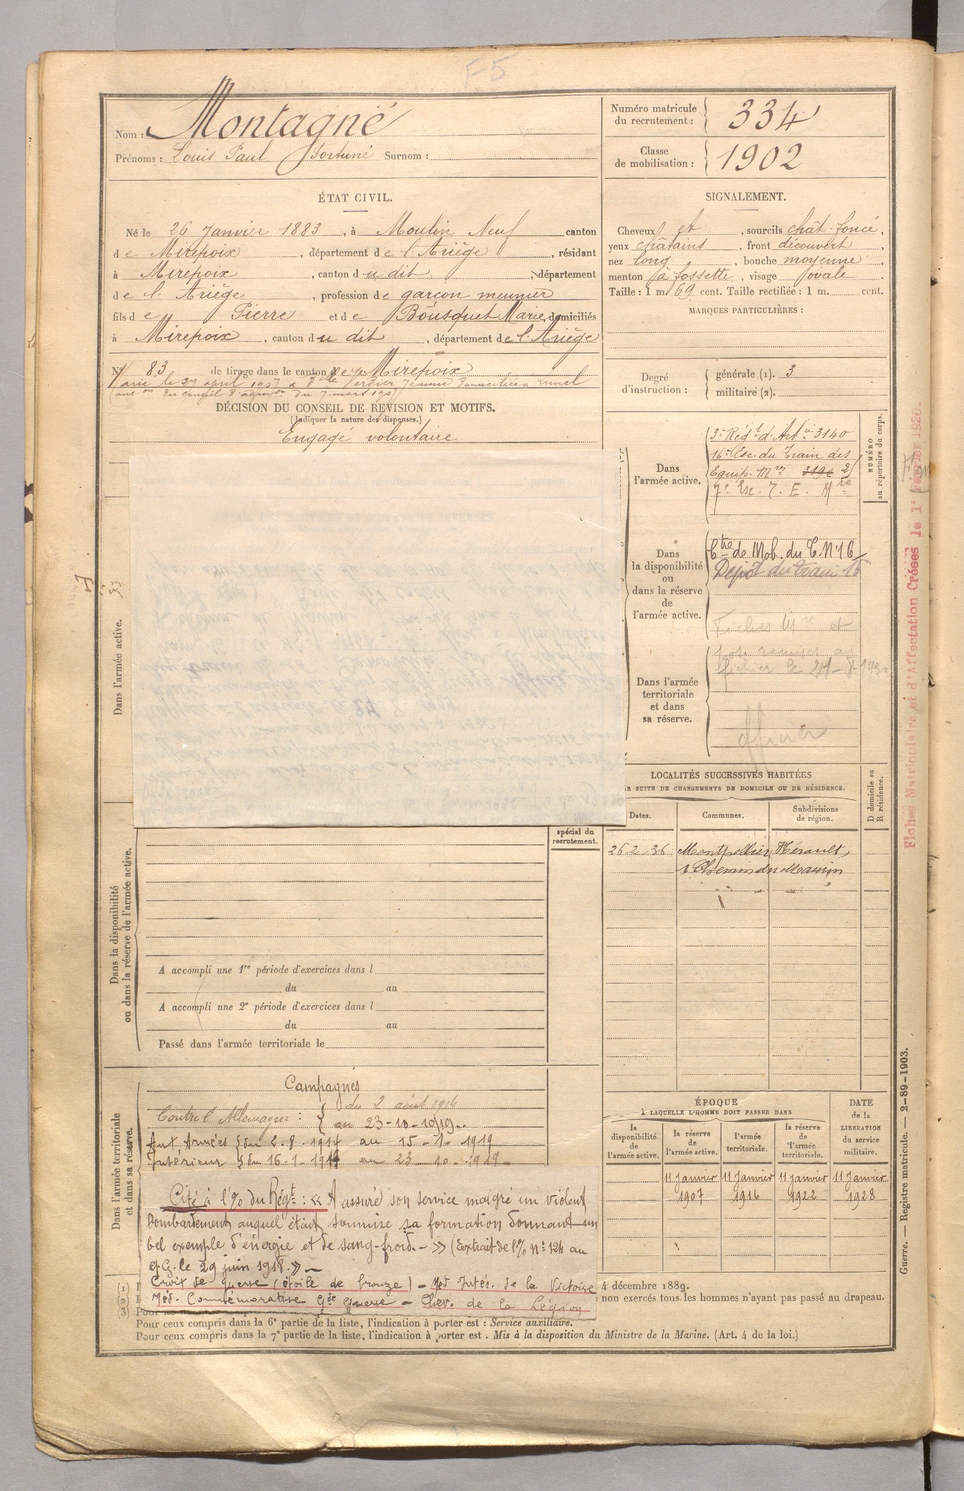 F5
Nom : Montagné
Prénoms : Louis Paul Fortuné Surnom :
Numéro matricule du recrutement : 334
Classe de mobilisation : 1902
ÉTAT CIVIL.
Né le 26 Janvier 1883, à Moulin Neuf canton
de Mirepoix, département de l'Ariège, résidant
à Mirepoix, canton du dit, département
de l'Ariège, profession de garçon meunier
fils de Pierre et de Bousquet Marie, domiciliés
à Mirepoix, canton du dit, département de l'Ariège
N° 83 de tirage dans le canton de Mirepoix
DÉCISION DU CONSEIL DE RÉVISION ET MOTIFS.
(Indiquer la nature des dispenses.)
Engagé volontaire
SIGNALEMENT.
Cheveux et, sourcils chât. foncé,
yeux châtains, front découvert
nez long, bouche moyenne,
menton à fossette, visage ovale
Taille : 1 m. 69 cent. Taille rectifiée : 1 m. cent.
MARQUES PARTICULIÈRES :
Degré d'instruction : générale (1). 3
militaire (2).
NUMÉRO au répertoire du corps.
Dans l'armée active.
3e Régt d'Art ie 3140
16e Esc. du Train des
Equip. Mres 3196
7e Esc. T. E. Mre
Dans la disponibilité ou dans la réserve de l'armée active.
Ctre de Mob. du T. N° 16
Dépôt du Train 16
Dans l'armée territoriale et dans sa réserve.
Fiches Mre et
officier
Dans l'armée active.
LOCALITÉS SUCCESSIVES HABITÉES
PAR SUITE DE CHANGEMENTS DE DOMICILE OU DE RÉSIDENCE.
Dates. Communes. Subdivisions de région. D domicile ou R résidence.
26-2-36 Montpellier Hérault,
spécial du recrutement.
Dans la disponibilité ou dans la réserve de l'armée active.
A accompli une 1re période d'exercices dans l
du au
A accompli une 2e période d'exercices dans l
du au
Passé dans l'armée territoriale le
Dans l'armée territoriale et dans sa réserve.
Campagnes
Contre l'Allemagne : du 2 août 1914
au 23-10-1919.
Aux Armées du 2.8.1914 au 15-1-1919
Intérieur du 16-1-1919 au 23-10-1919
Cité à l'% du Régt : « A assuré son service malgré un violent
bombardement auquel était soumise sa formation donnant un
bel exemple d'énergie et de sang-froid. — » (Extrait de l'% N° 124 au
Q.G. le 29 juin 1918. » —
Croix de guerre (étoile de bronze) — Méd. Intés. de la Victoire
Méd. Commémorative Gde guerre — Chev. de la Légion
ÉPOQUE
À LAQUELLE L'HOMME DOIT PASSER DANS
DATE de la LIBÉRATION du service militaire.
la disponibilité de l'armée active. la réserve de l'armée active. l'armée territoriale. la réserve de l'armée territoriale.
11 Janvier 1907 11 Janvier 1916 11 Janvier 1922 11 Janvier 1928
4 décembre 1889.
non exercés tous les hommes n'ayant pas passé au drapeau.
(1)
(2)
(3)
Pour ceux compris dans la 6e partie de la liste, l'indication à porter est : Service auxiliaire.
Pour ceux compris dans la 7e partie de la liste, l'indication à porter est : Mis à la disposition du Ministre de la Marine. (Art. 4 de la loi.)
Guerre. — Registre matricule. — 2-89-1903.
Fiches Matriculaire et d'Affectation Créées le 1er Février 1920.